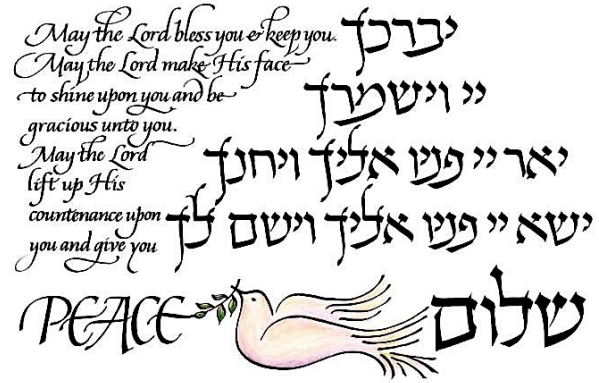 May the Lord bless you & keep you.
May the Lord make His face
to shine upon you and be
gracious unto you.
May the Lord
lift up His
countenance upon
you and give you
PEACE
יברכך
יי וישמרך
יאר יי פניו אליך ויחנך
ישא יי פניו אליך וישם לך
שלום